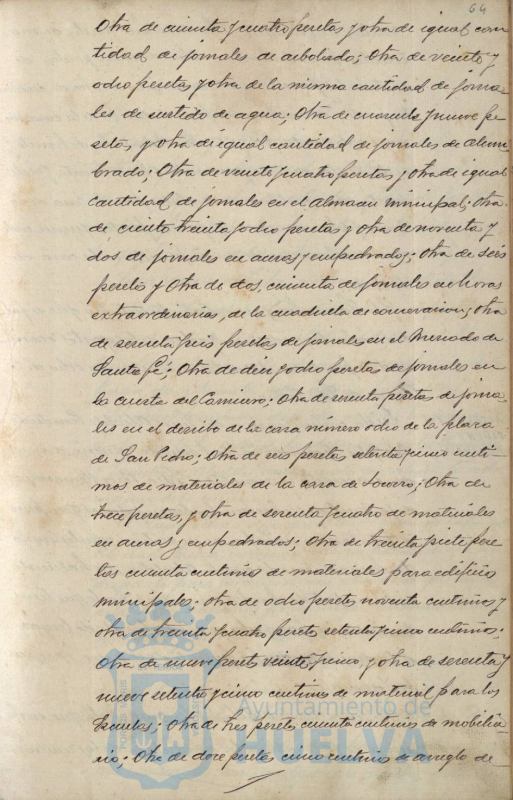 64
Otra de cincuenta y cuatro pesetas y otra de igual can-
tidad de jornales de arbolado; Otra de veinte y
ocho pesetas y otra de la misma cantidad de jorna-
les de surtido de agua; Otra de cuarenta y nueve pe-
setas y otra de igual cantidad de jornales de alum-
brado; Otra de veinte y cuatro pesetas y otra de igual
cantidad de jornales en el almacen municipal; Otra
de ciento treinta y ocho pesetas y otra de noventa y
dos de jornales en aceras y empedrados; Otra de seis
pesetas y Otra de dos, cincuenta de jornales en horas
extraordinarias, de la cuadrilla de conservacion; Otra
de sesenta y seis pesetas de jornales en el Mercado de
Santa Fé; Otra de diez y ocho pesetas de jornales en
la cuesta del Carnicero; Otra de sesenta pesetas de jorna-
les en el derribo de la casa número ocho de la plaza
de San Pedro; Otra de seis pesetas setenta y cinco centi-
mos de materiales de la casa de Socorro; Otra de
trece pesetas, y otra de sesenta y cuatro de materiales
en aceras y empedrados; Otra de treinta y siete pese-
tas cincuenta centimos de materiales para edificios
municipales; otra de ocho pesetas noventa centimos y
otra de treinta y cuatro pesetas setenta y cinco centimos;
Otra de nueve pesetas veinte y cinco, y otra de sesenta y
nueve setenta y cinco centimos de material para las
Escuelas; Otra de tres pesetas cincuenta centimos de mobilia-
rio; Otra de doce pesetas cinco centimos de arreglo de
Ayuntamiento de
HUELVA